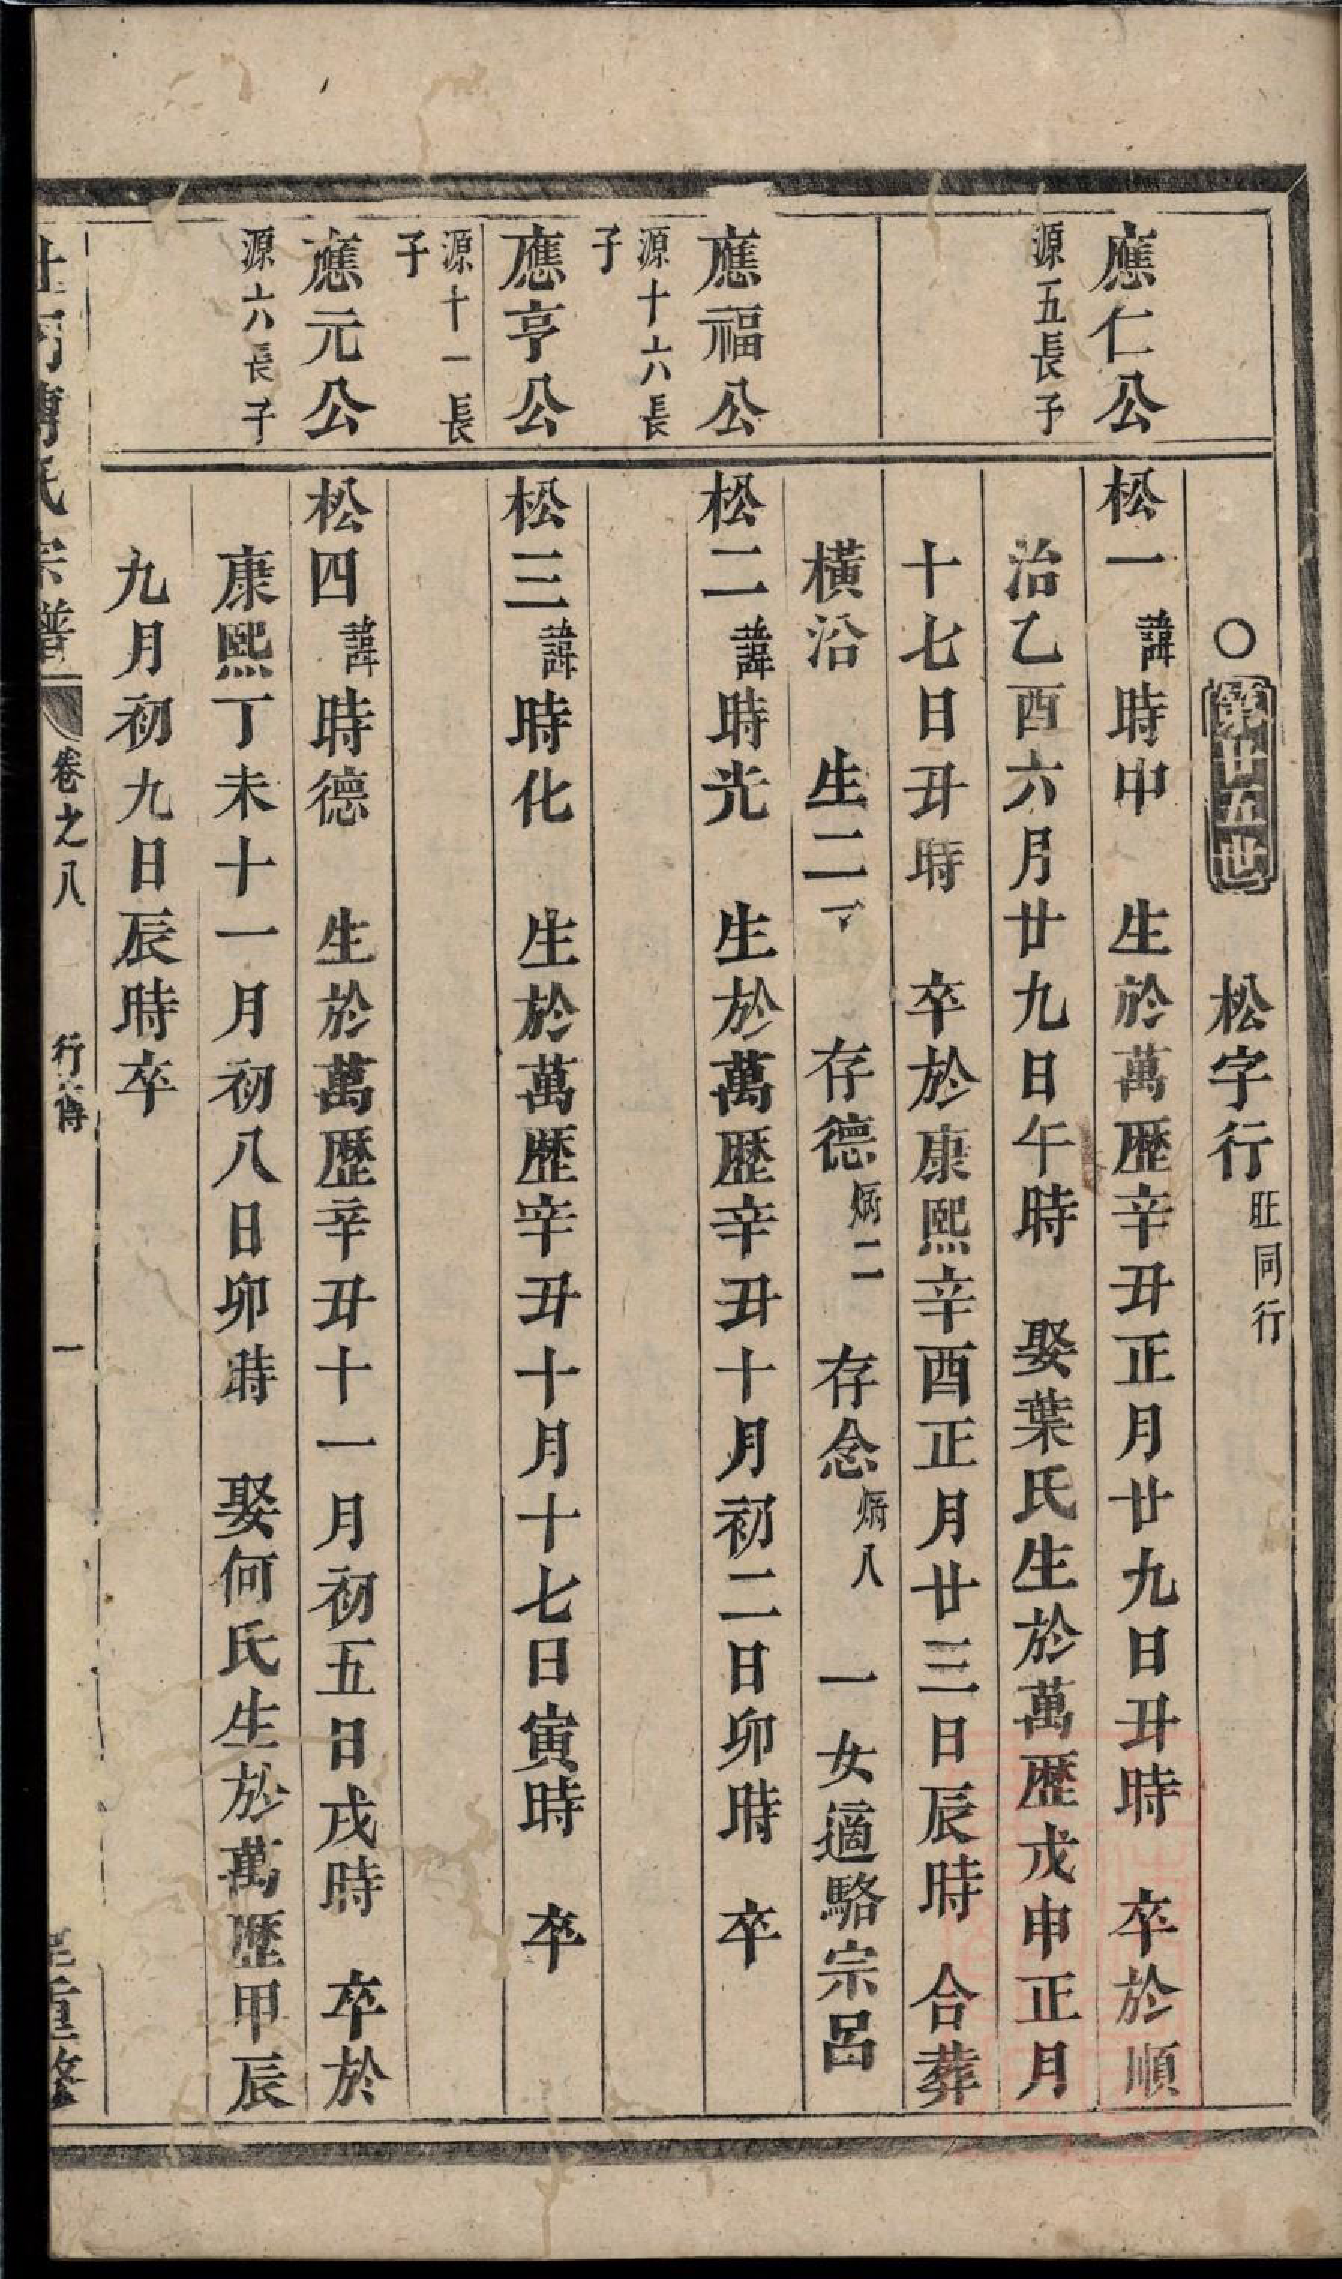 ○第廿五世 松字行 旺同行
應仁公 源五長子
松一 諱時中 生於萬歷辛丑正月廿九日丑時 卒於順
治乙酉六月廿九日午時 娶葉氏生於萬歷戊申正月
十七日丑時 卒於康熙辛酉正月廿三日辰時 合葬
橫沿 生二子 存德炳二 存念炳八 一女適駱宗呂
應福公 源十六長子
松二 諱時光 生於萬歷辛丑十月初二日卯時 卒
應亨公 源十一長子
松三 諱時化 生於萬歷辛丑十月十七日寅時 卒
應元公 源六長子
松四 諱時德 生於萬歷辛丑十一月初五日戌時 卒於
康熙丁未十一月初八日卯時 娶何氏生於萬歷甲辰
九月初九日辰時卒
傅氏宗譜 卷之八 行傳 一 重修